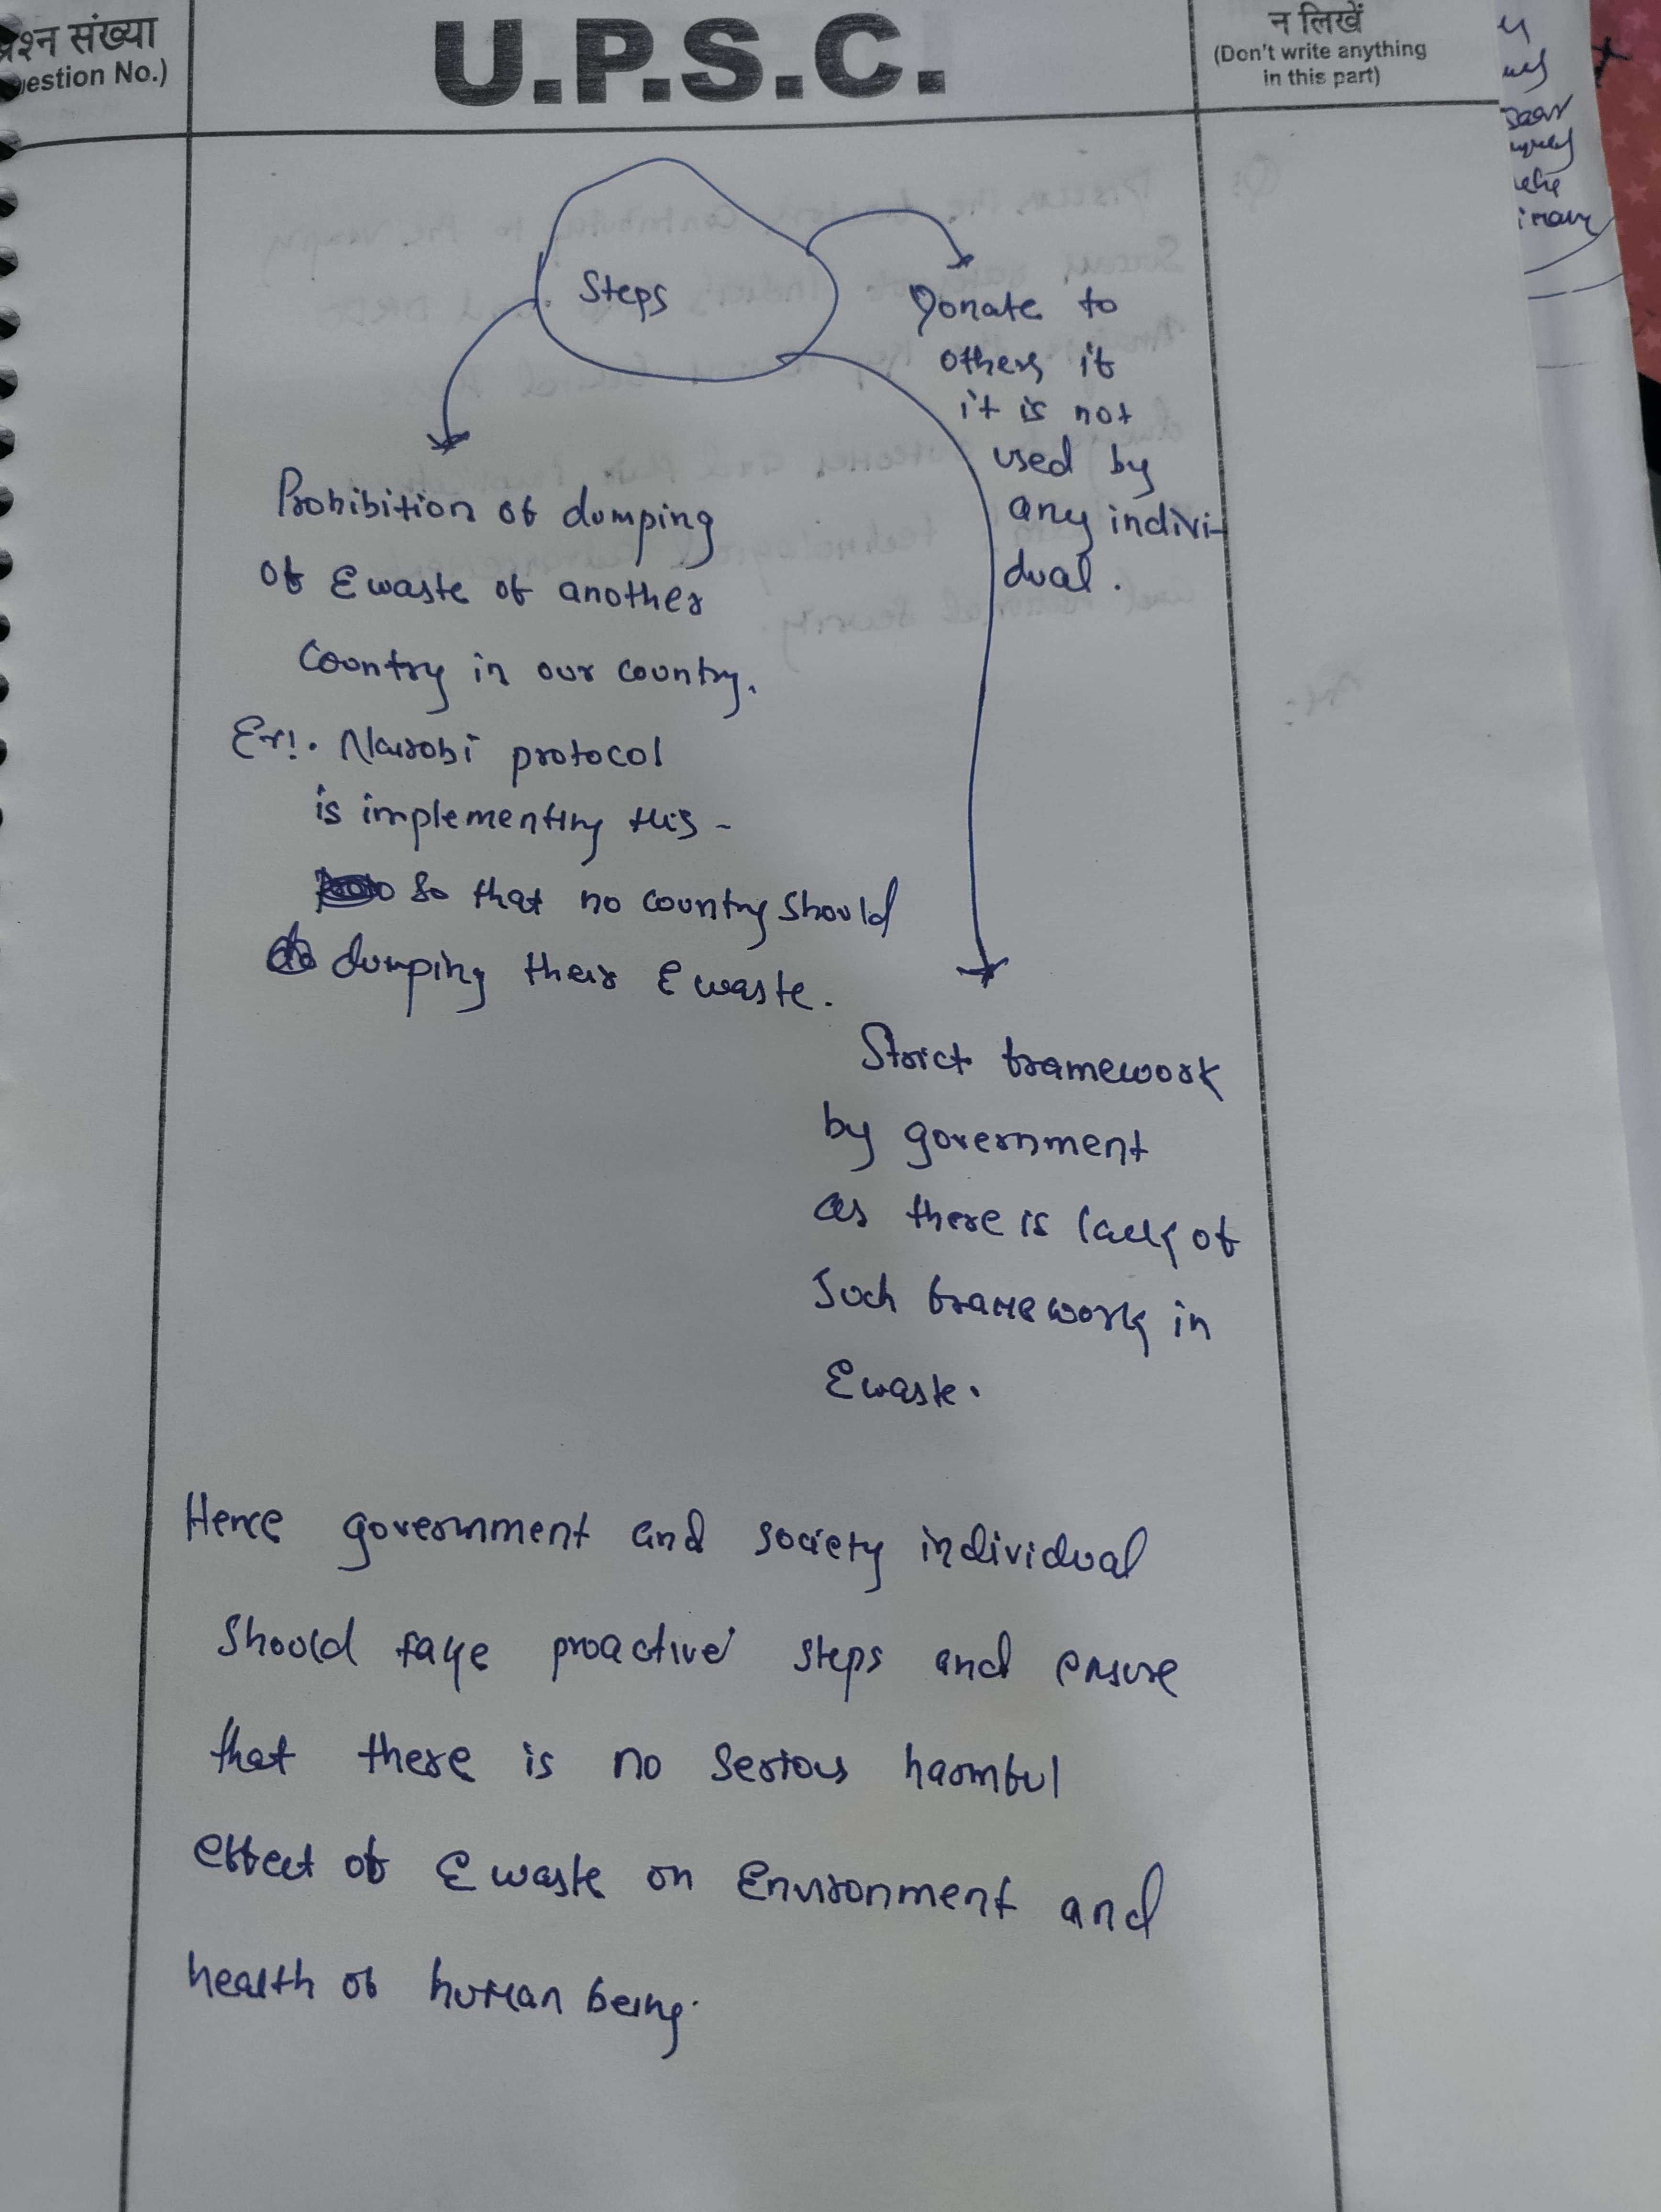 प्रश्न संख्या
(Question No.)
U.P.S.C.
न लिखें
(Don't write anything
in this part)
Steps
Donate to
others if
it is not
used by
any indivi-
dual.
Prohibition of dumping
of Ewaste of another
Country in our country.
Ex:. Nairobi protocol
is implementing this -
so that no country should
dumping their E waste.
Strict framework
by government
as there is lack of
Such framework in
Ewaste.
Hence government and society individual
should take proactive steps and ensure
that there is no serious harmful
effect of E waste on Environment and
health of human being.